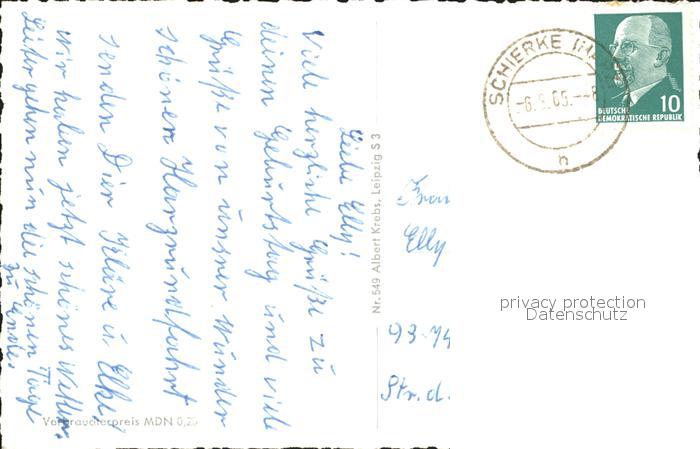 Liebe Elly!
Viele herzliche Grüße zu
deinen Geburtstag und viele
Grüße von unsrer wunder
schönen Harzrundfahrt
senden Dir Kläre u. Elke,
Wir haben jetzt schönes Wetter.
Leider gehen nun die schönen Tage
zu Ende.
Verbraucherpreis MDN 0,20
Nr. 549 Albert Krebs, Leipzig S 3
SCHIERKE
-6.9.65.--8
h
10
DEUTSCHE
DEMOKRATISCHE REPUBLIK
Frau
Elly
privacy protection
Datenschutz
93-74
Str. d.